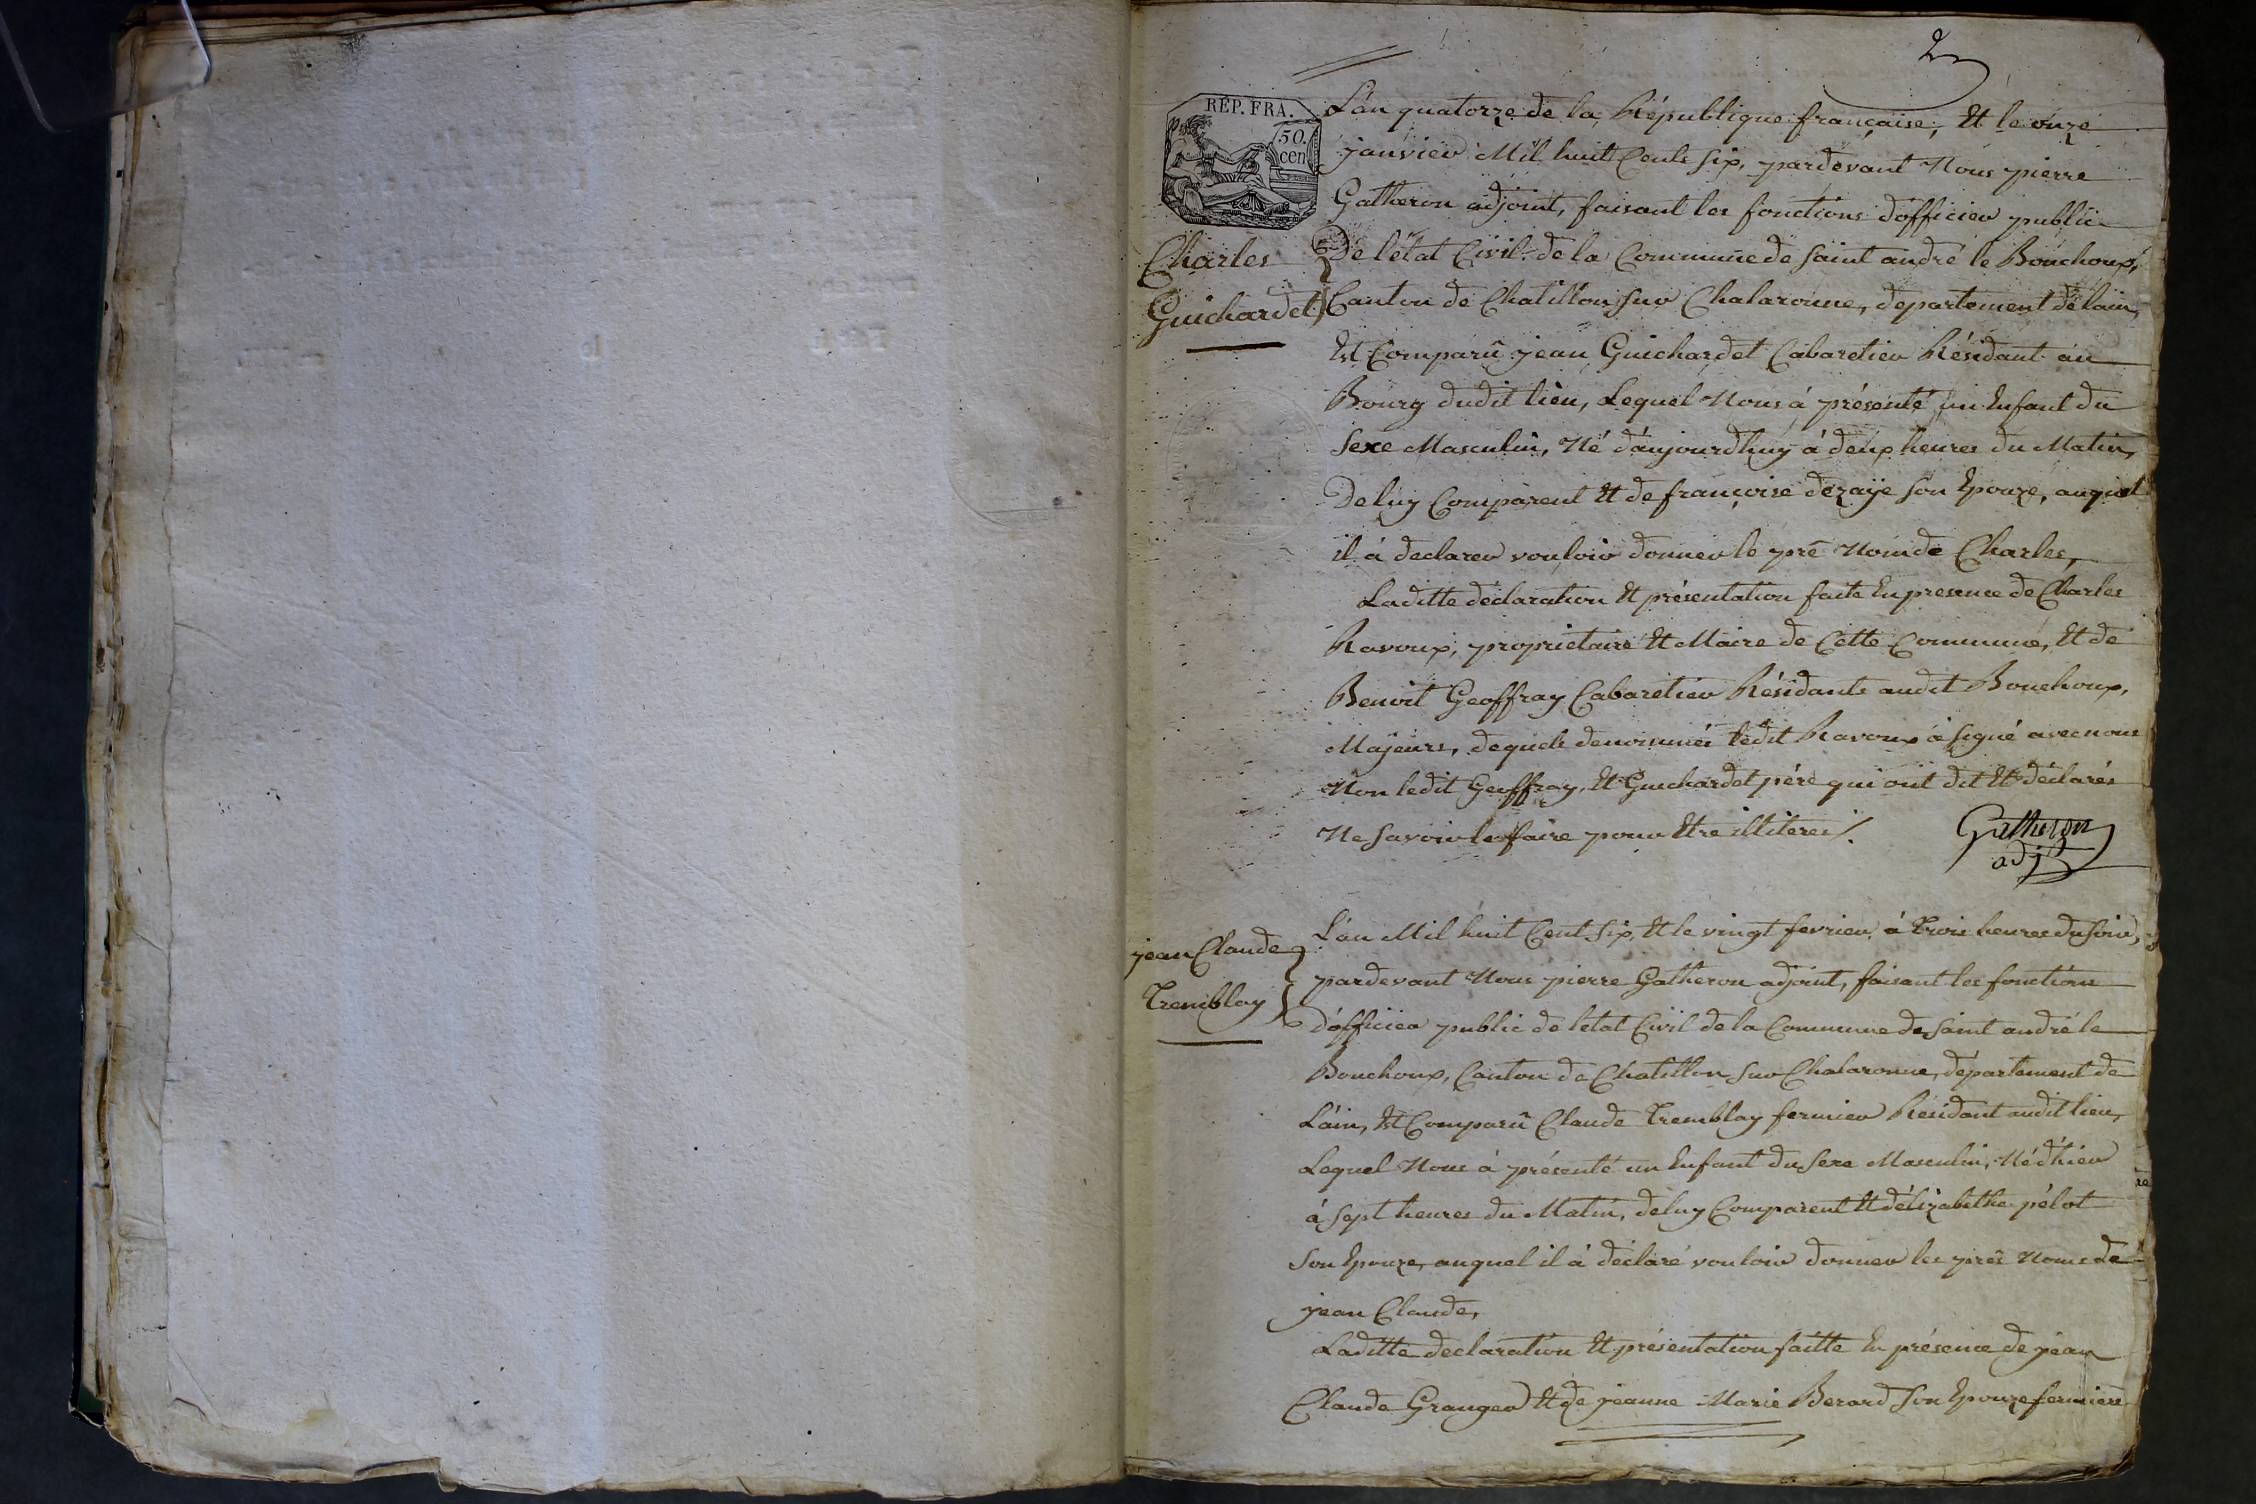 2
RÉP. FRA.
50.
cen
L'an quatorze de la République française, Et le onze
janvier Mil huit Cents six, pardevant Nous pierre
Gatheron adjoint, faisant les fonctions d'officier public
Charles
De l'état Civil de la Commune de saint andré le Bouchoux,
Guichardet
Canton de Chatillon sur Chalaronne, departement de lain,
Est Comparû jean Guichardet Cabaretier Résidant au
Bourg dudit lieu, Lequel Nous á présenté un Enfant du
sexe Masculin, Né d'aujourdhuy á deux heures du Matin,
De luy Comparent Et de françoise dezaÿe son Epouze, auquel
il á declarer vouloir donner le pré Nom de Charles,
Laditte déclaration Et présentation faite En presence de Charles
Ravoux, proprietaire Et Maire de Cette Commune, Et de
Benoit Geoffray Cabaretier Résidants audit Bouchoux,
Majeurs, dequels denommés ledit Ravoux á signé avec nous
Non ledit Geoffray, Et Guichardet pére qui ont dit Et déclarés
Ne savoir le faire pour Etre illiterés /.
Gatheron
adj
L'an Mil huit Cent six, Et le vingt fevrier, á trois heures du soir,
jean Claude
pardevant Nous pierre Gatheron adjoint, faisant les fonctions
Tremblay
d'officier public de l'etat Civil de la Commune de saint andré le
Bouchoux, Canton de Chatillon sur Chalaronne, département de
L'ain, Est Comparû Claude Tremblay fermier Résidant audit lieu,
Lequel Nous á présenté un Enfant du sexe Masculin, Né d'hier
á sept heures du Matin, de luy Comparent Et d'élizabethe pélot
son Epouze, auquel il á déclaré vouloir donner les prés Noms de
jean Claude,
Laditte declaration Et présentation faitte En présence de jean
Claude Granger Et de jeanne Marie Berard son Epouze fermiers